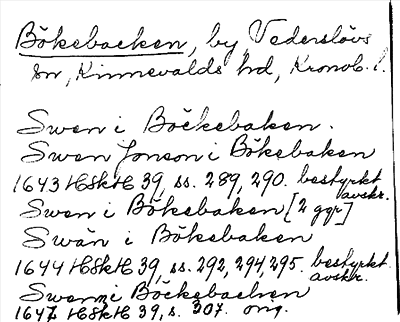 Bökebacken, by, Vederslövs
sn, Kinnevalds hd, Kronob. l.
Swen i Böckebaken.
Swen Jonson i Bökebaken
1643 HSkH 39, ss. 289, 290. bestyrkt
avskr.
Swen i Bökebaken [2 ggr]
Swän i Bökebaken
1644 HSkH 39, ss. 292, 294, 295. bestyrkt
avskr.
i Böckebachen
1647 HSkH 39, s. 307. orig.